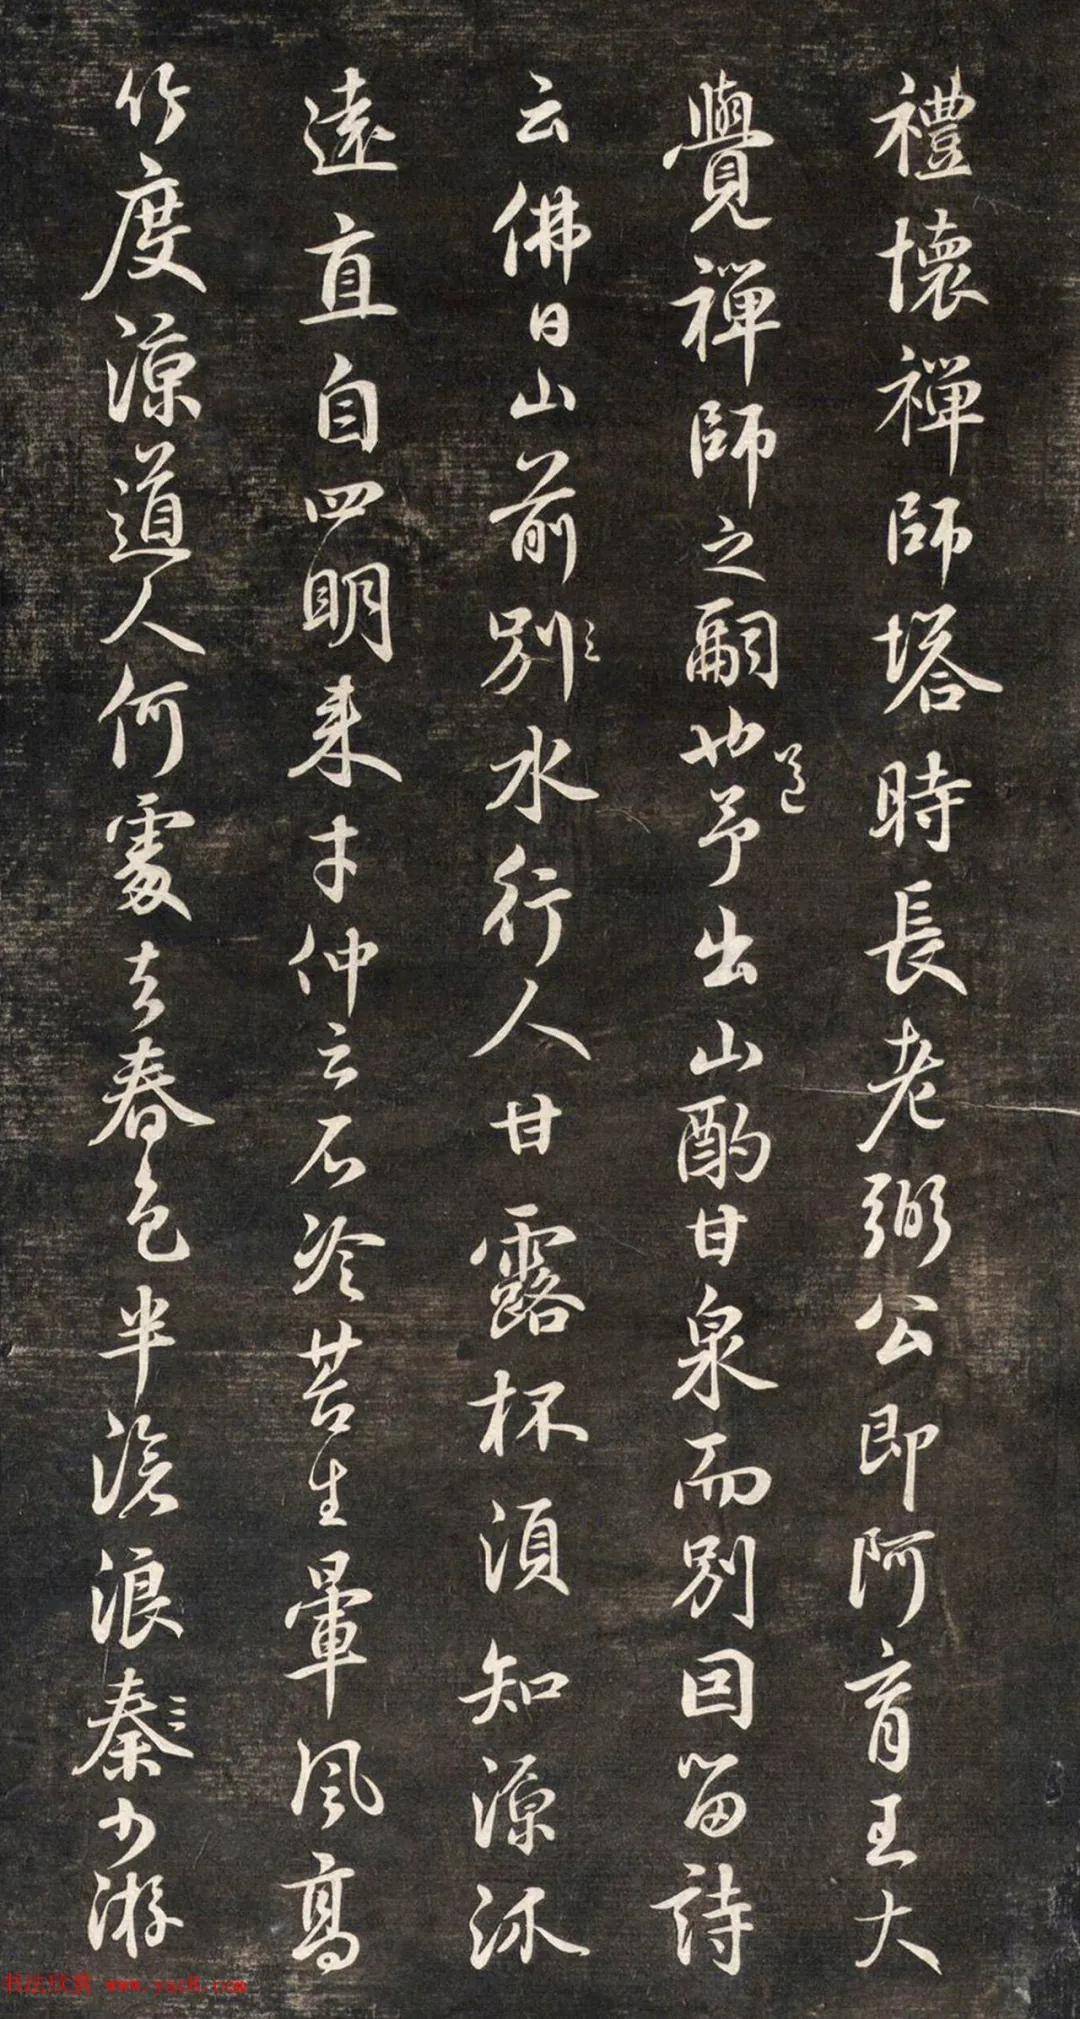 禮懷禪師塔時長老弼公即阿育王大
覺禪師之嗣也予出山酌甘泉而別因留詩
道
云佛日山前別水行人甘露杯須知源派
遠直自四明来才仲云石冷苔生暈風高
竹度涼道人何處去春色半滄浪秦少游
书法欣赏 www.yac8.com